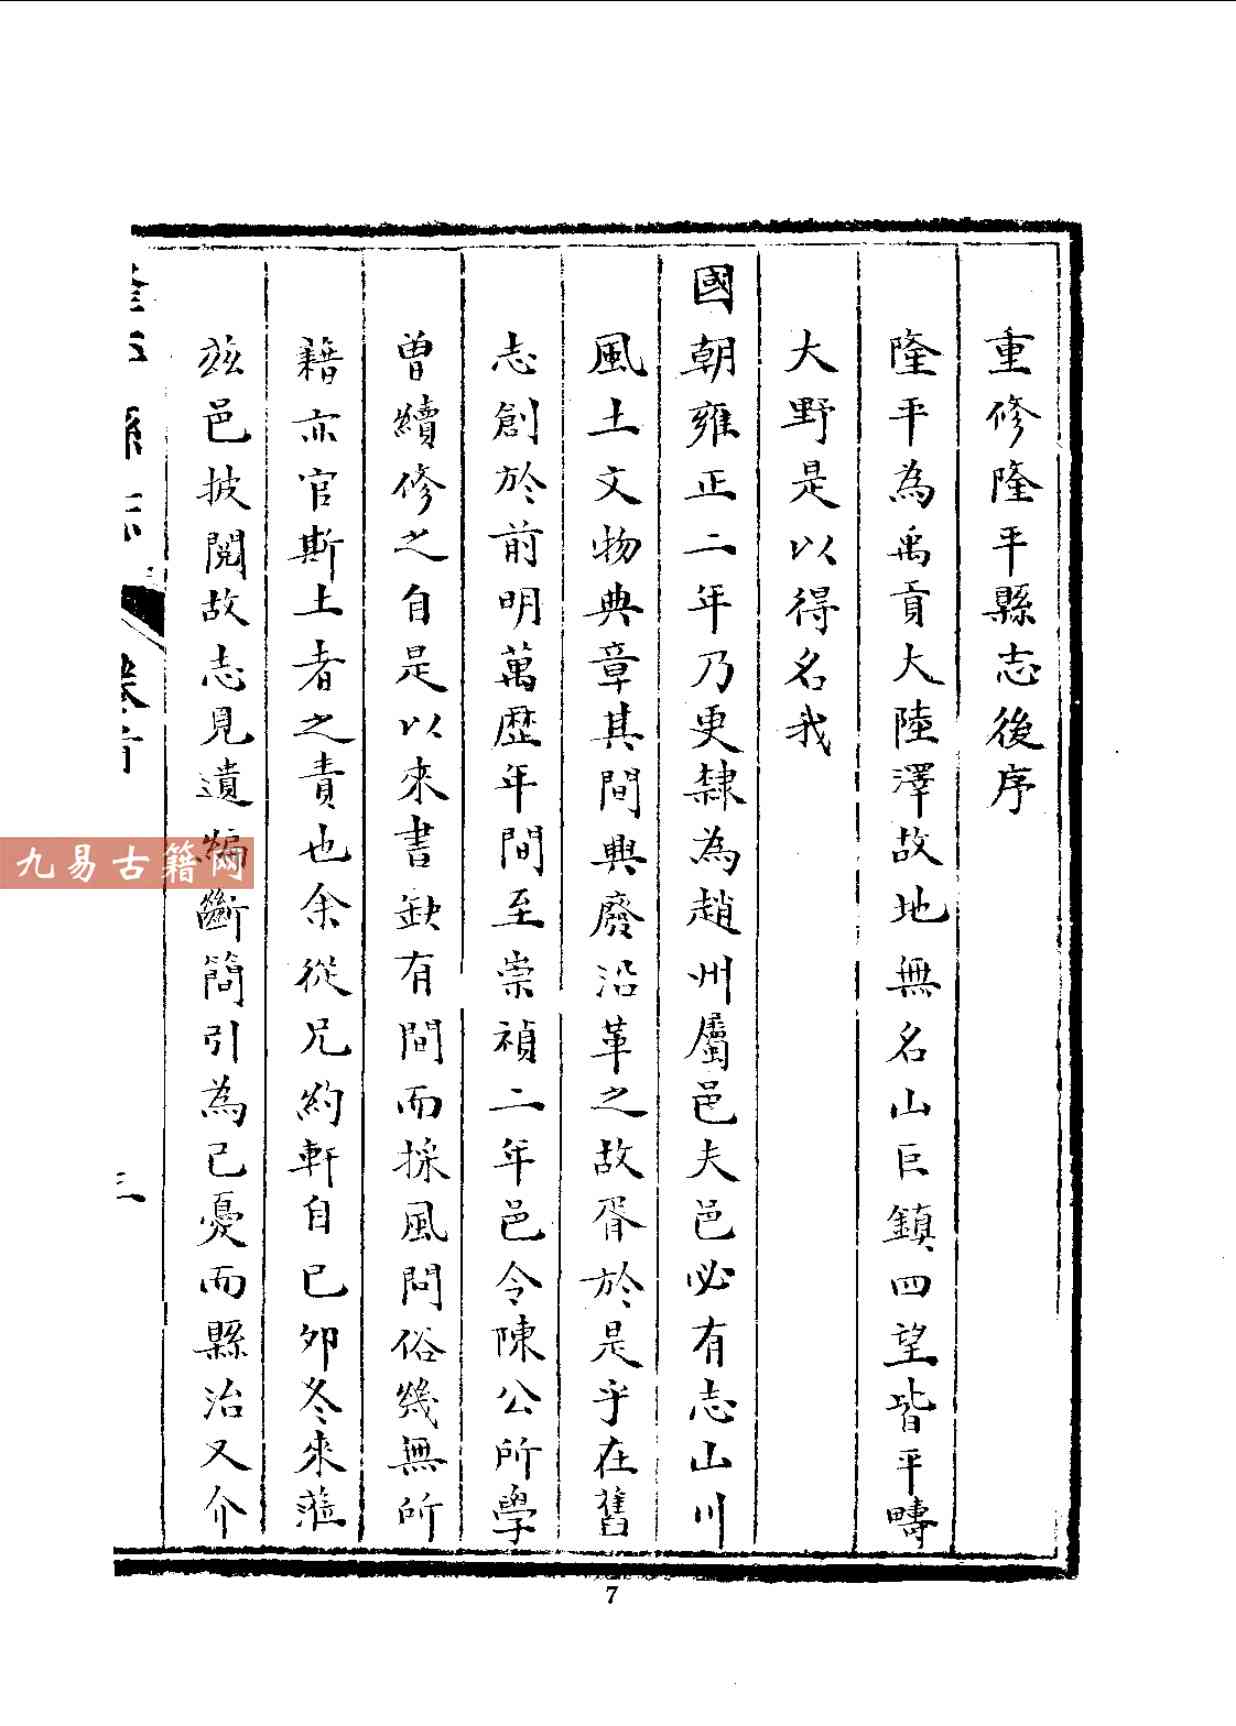 重修隆平縣志後序
隆平為禹貢大陸澤故地無名山巨鎮四望皆平疇
大野是以得名我
國朝雍正二年乃更隸為趙州屬邑夫邑必有志山川
風土文物典章其間興廢沿革之故胥於是乎在舊
志創於前明萬歷年間至崇禎二年邑令陳公所學
曾續修之自是以來書缺有間而採風問俗幾無所
籍亦官斯土者之責也余從兄約軒自己夘冬來蒞
茲邑披閱故志見遺編斷簡引為己憂而縣治又介
隆平縣志
卷首
三
7
九易古籍网